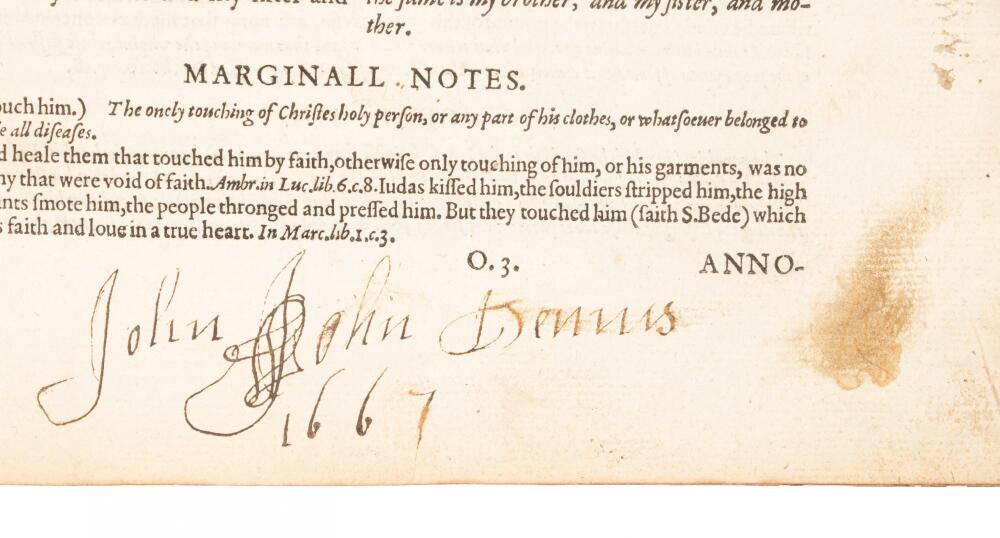 The same is my brother, and my sister, and mo-
ther.
MARGINALL NOTES.
ouch him.) The onely touching of Chriſtes holy perſon, or any part of his clothes, or whatſoeuer belonged to
e all diſeaſes.
d heale them that touched him by faith,otherwiſe only touching of him, or his garments, was no
ny that were void of faith. Ambr.in Luc.lib.6.c.8. Iudas kiſſed him,the ſouldiers ſtripped him,the high
nts ſmote him,the people thronged and preſſed him. But they touched him (ſaith S.Bede) which
s faith and loue in a true heart. In Marc.lib.1.c.3.
O.3. ANNO-
John John Dennis
1667